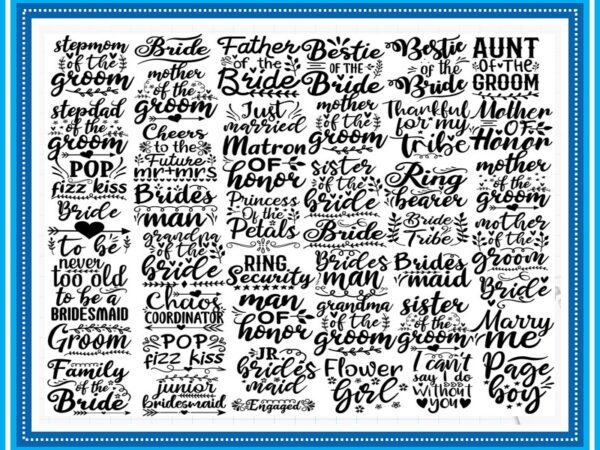 stepmom
of the
groom
stepdad
of the
groom
POP
fizz kiss
Bride
to be
never
too old
to be a
BRIDESMAID
Groom
Family
of the
Bride
Bride
mother
of the
groom
Cheers
to the
Future
mr+mrs
Brides
man
grandma
of the
bride
Chaos
COORDINATOR
POP
fizz kiss
junior
bridesmaid
Father
of the
Bride
Just
married
Matron
OF
honor
Princess
Of the
Petals
RING
Security
man
OF
honor
JR
brides
maid
Engaged
Bestie
of the
Bride
mother
of the
groom
sister
of the
bride
Bride
Brides
man
grandma
of the
groom
Flower
Girl
Bestie
of the
Bride
Thankful
for my
tribe
Ring
bearer
Bride
Tribe
Brides
maid
sister
of the
groom
I can't
say I do
WITHOUT
YOU
AUNT
OF THE
GROOM
Mother
OF
Honor
mother
of the
groom
mother
of the
groom
Bride
Marry
me
Page
boy